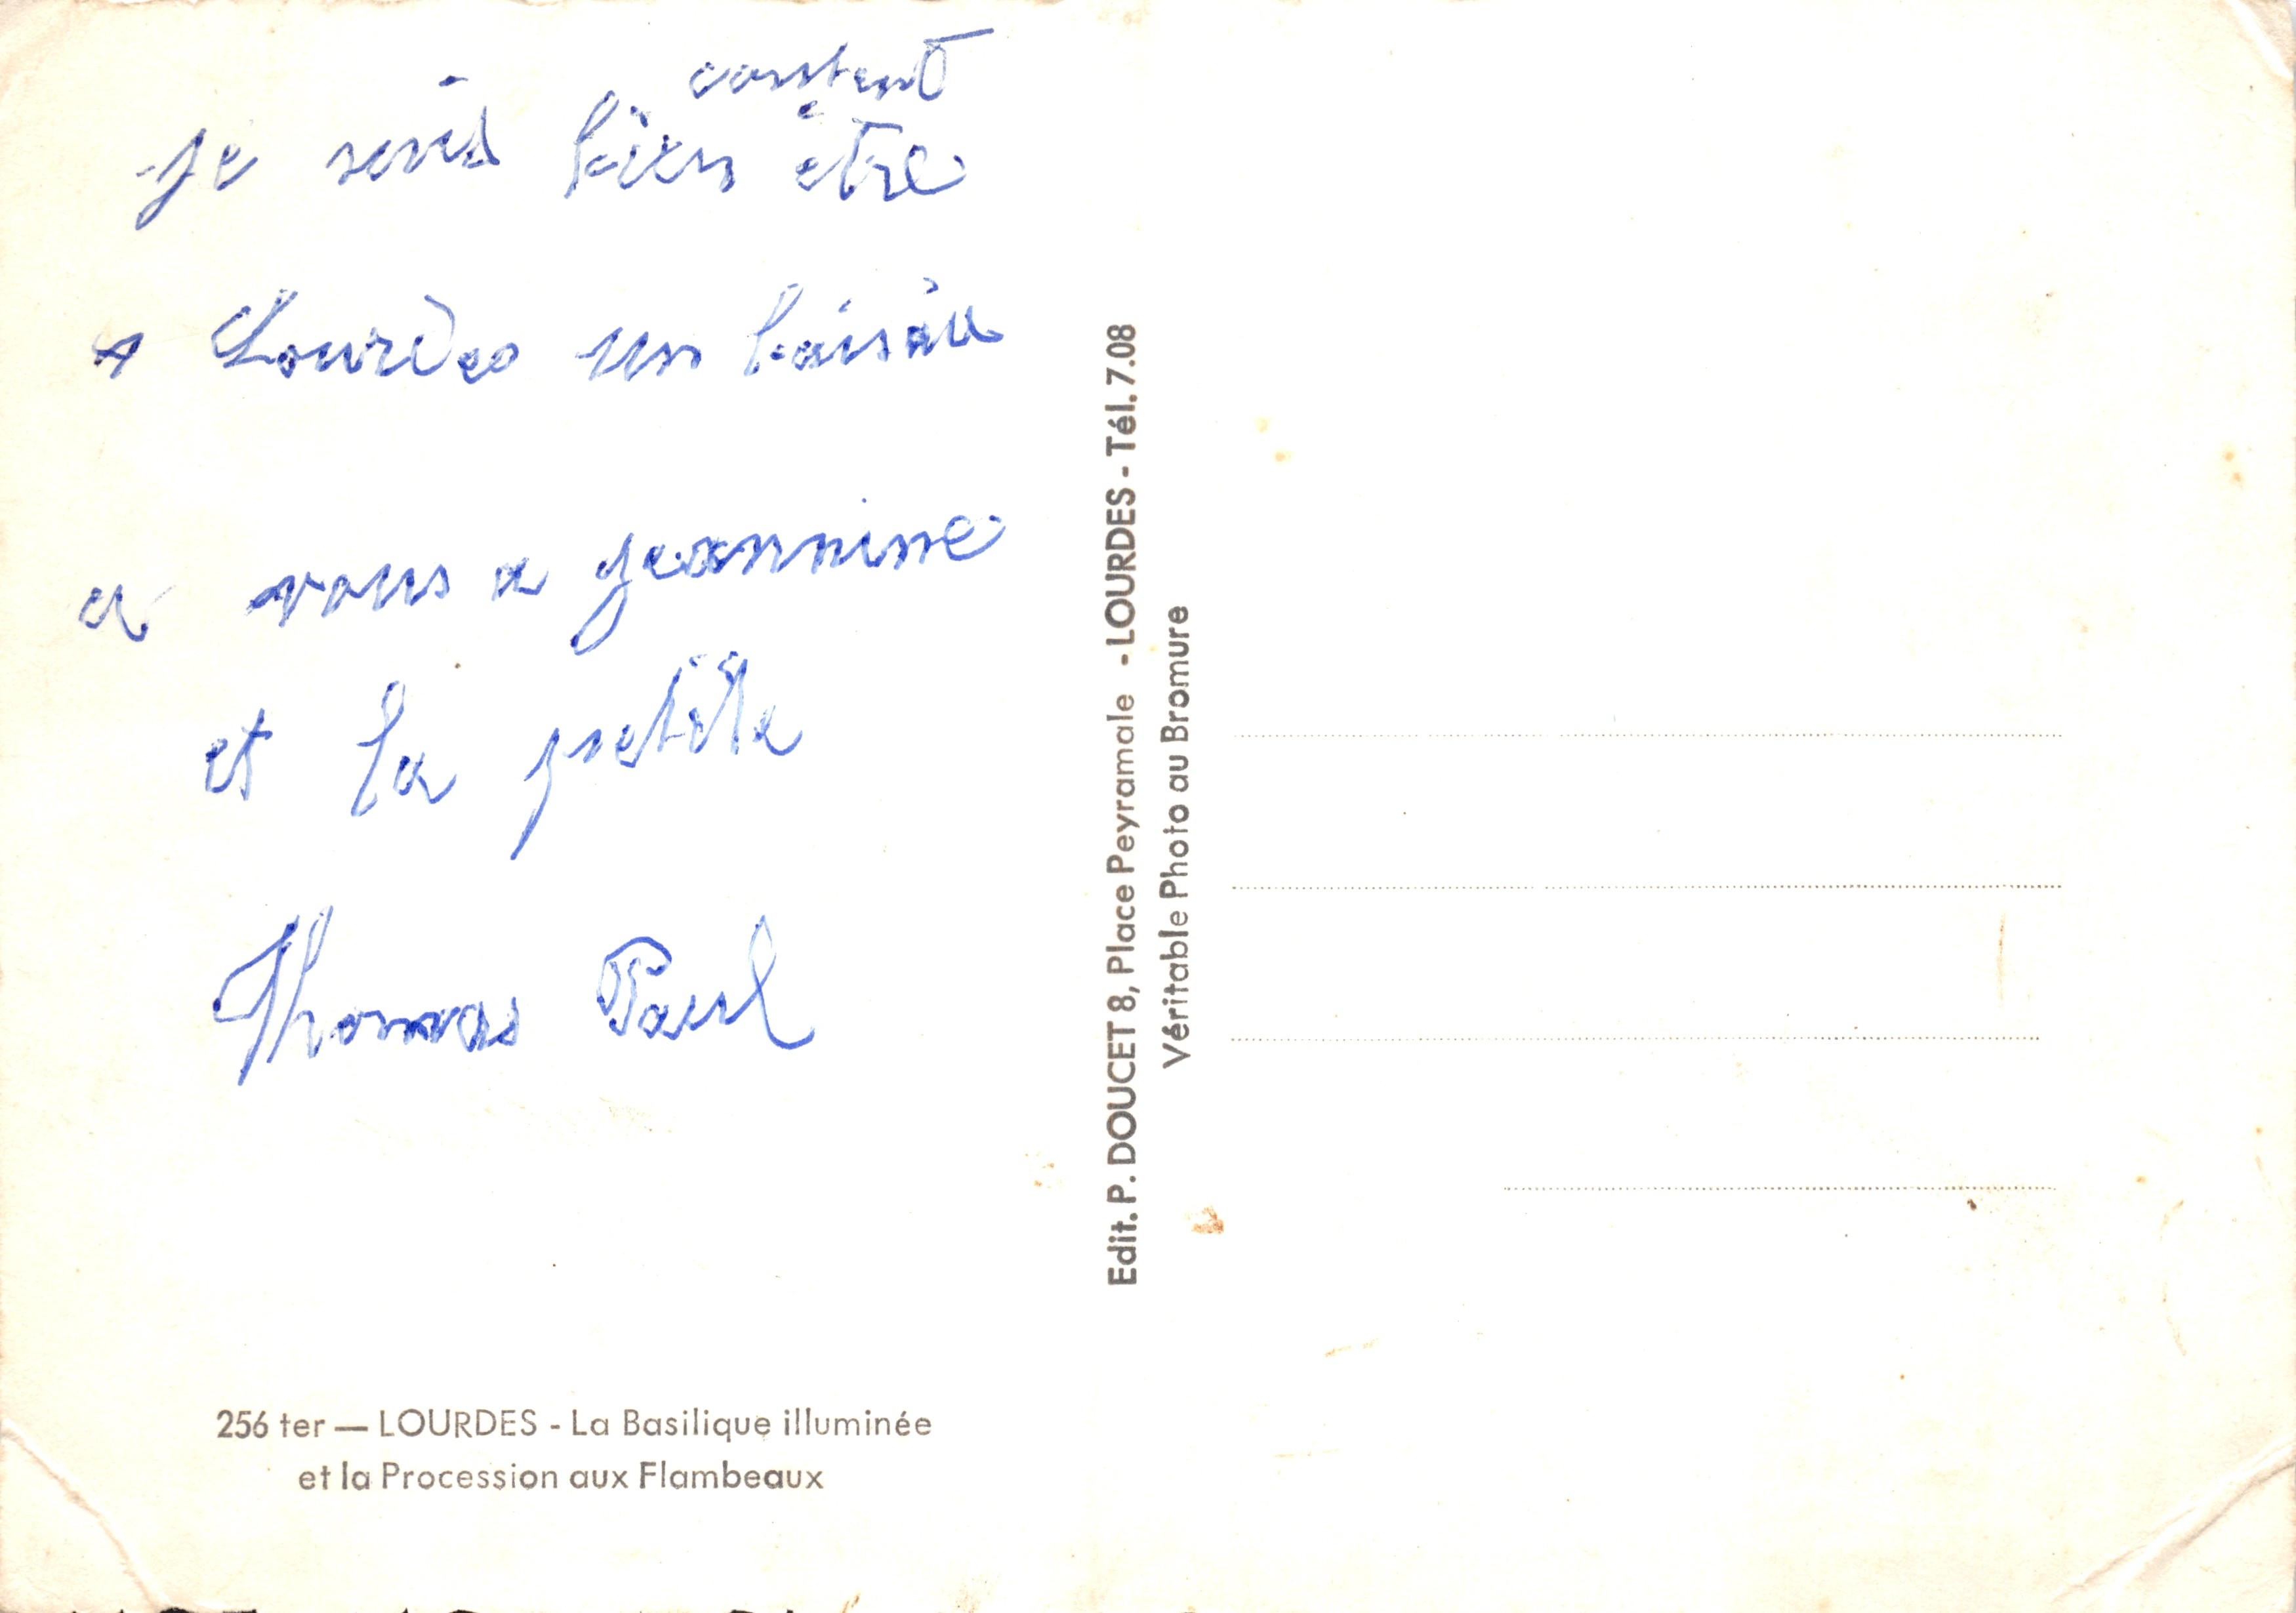 content
je suis bien être
a Lourdes un
a vous a jeannine
et la petite
Thomas Paul
256 ter — LOURDES - La Basilique illuminée
et la Procession aux Flambeaux
Edit. P. DOUCET 8, Place Peyramale - LOURDES - Tél. 7.08
Véritable Photo au Bromure